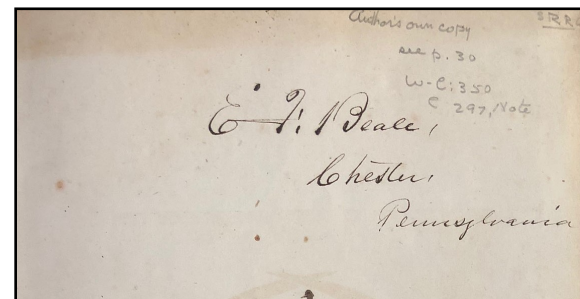 Author's own copy
see p. 30
W-C: 350
C 297, Note
E. F. Beale,
Chester,
Pennsylvania